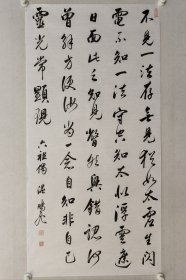 不見一法存無見猶如太虛生閃
電不知一法守空知太似浮雲遮
日面此之知見瞥然興錯認何
曾解方便汝當一念自知非自己
靈光常顯現 六祖偈